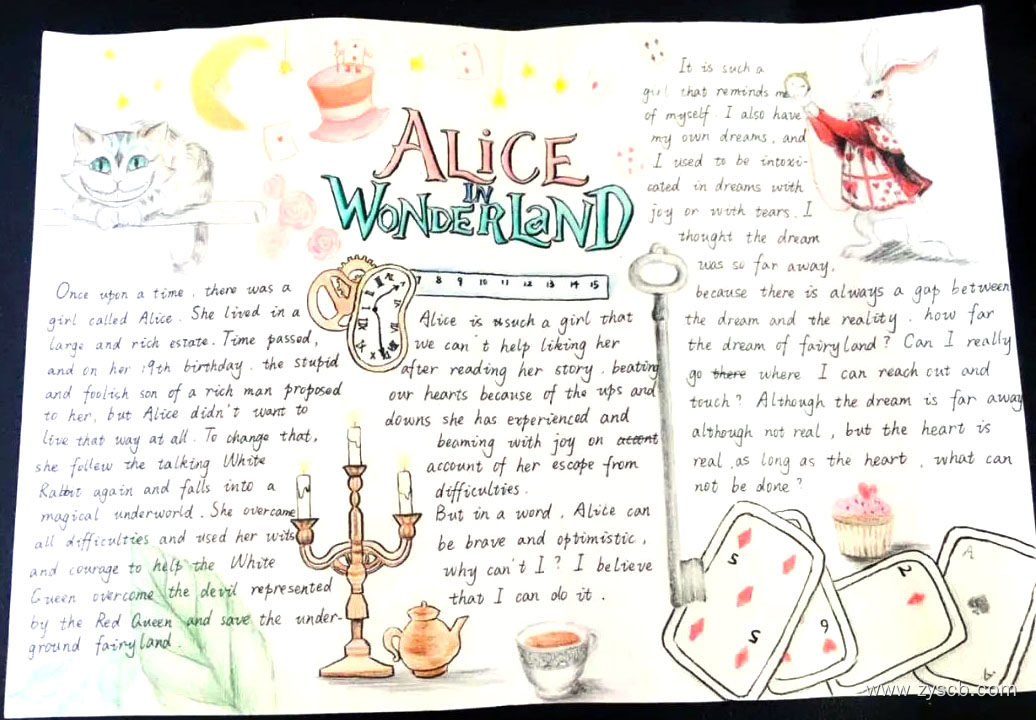 ALICE
IN
WONDERLAND
Once upon a time, there was a
girl called Alice. She lived in a
large and rich estate. Time passed,
and on her 19th birthday, the stupid
and foolish son of a rich man proposed
to her, but Alice didn't want to
live that way at all. To change that,
she follew the talking White
Rabbit again and falls into a
magical underworld. She overcame
all difficulties and used her wits
and courage to help the White
Queen overcome the devil represented
by the Red Queen and save the under-
ground fairyland.
7 8 9 10 11 12 13 14 15
Alice is such a girl that
we can't help liking her
after reading her story, beating
our hearts because of the ups and
downs she has experienced and
beaming with joy on
account of her escape from
difficulties.
But in a word, Alice can
be brave and optimistic,
why can't I? I believe
that I can do it.
It is such a
girl that reminds me
of myself. I also have
my own dreams, and
I used to be intoxi-
cated in dreams with
joy or with tears. I
thought the dream
was so far away,
because there is always a gap between
the dream and the reality. how far
the dream of fairyland? Can I really
go there where I can reach out and
touch? Although the dream is far away
although not real, but the heart is
real, as long as the heart, what can
not be done?
5
5
6
2
A
A
www.zyscb.com